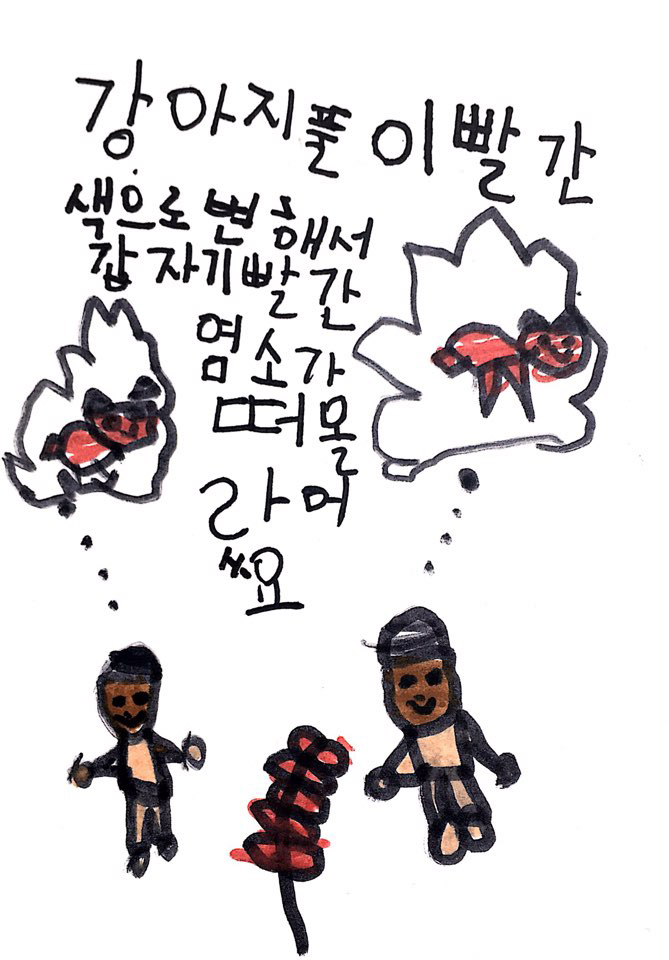 강아지풀이빨간
색으로변해서
갑자기빨간
염소가
떠올
라어
ㅆ요